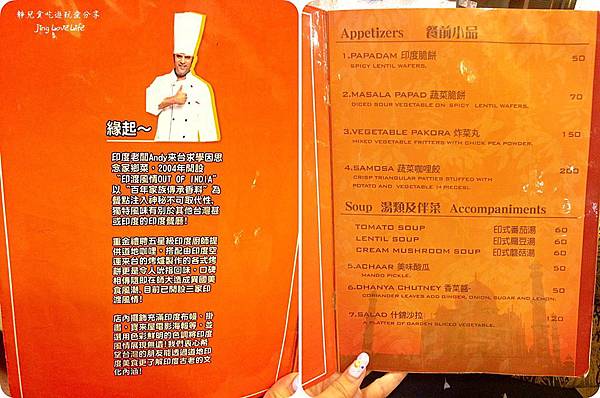 靜兒貪吃遊玩愛分享
Jing Love Life
緣起～
印度老闆Andy來台求學因思
念家鄉菜，2004年開設
"印渡風情OUT OF INDIA"
以"百年家族傳承香料"為
餐點注入神秘不可取代性、
獨特風味有別於其他台灣甚
或印度的印度餐廳!
重金禮聘五星級印度廚師提
供道地咖哩，搭配由印度空
運來台的烤爐製作的各式烤
餅更是令人吮指回味，口碑
相傳隨即在師大造成異國美
食風潮,目前已開設三家印
渡風情!
店內擺飾充滿印度布幔、掛
畫，寶萊屋電影海報等，並
選用色彩鮮明的色調將印度
風情展現無遺!我們衷心希
望台灣的朋友能透過道地印
度美食更了解印度古老的文
化內涵!
Appetizers 餐前小品
1.PAPADAM 印度脆餅 50
SPICY LENTIL WAFERS.
2.MASALA PAPAD 蔬菜脆餅 70
DICED SOUR VEGETABLE ON SPICY LENTIL WAFERS.
3.VEGETABLE PAKORA 炸菜丸 150
MIXED VEGETABLE FRITTERS WITH CHICK PEA POWDER.
4.SAMOSA 蔬菜咖哩餃 200
CRISP TRIANGULAR PATTIES STUFFED WITH
POTATO AND VEGETABLE (4 PIECES).
Soup 湯類及伴菜 Accompaniments
TOMATO SOUP 印式番茄湯 60
LENTIL SOUP 印式扁豆湯 60
CREAM MUSHROOM SOUP 印式蘑菇湯 60
5.ACHAAR 美味酸瓜 50
MANGO PICKLE.
6.DHANYA CHUTNEY 香菜醬 50
CORIANDER LEAVES ADD GINGER, ONION, SUGAR AND LEMON.
7.SALAD 什錦沙拉 120
A PLATTER OF GARDEN SLICED VEGETABLE.